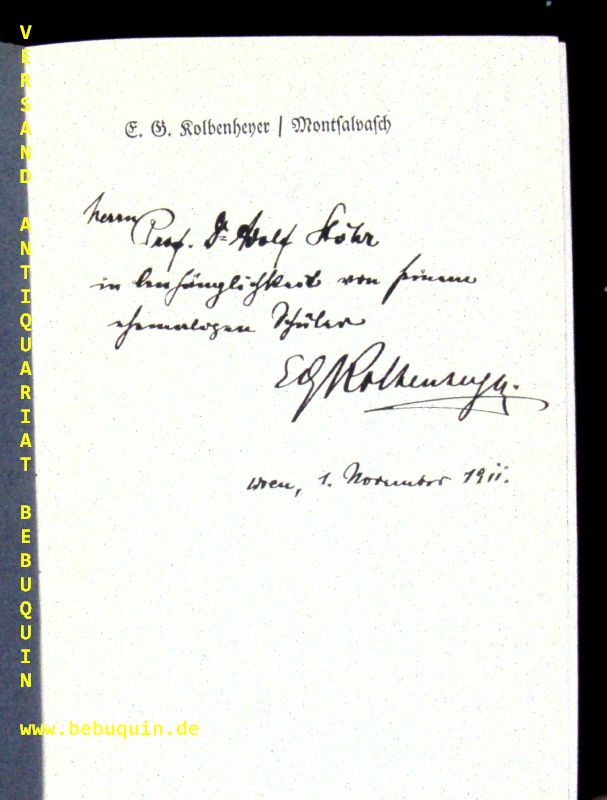 E. G. Kolbenheyer / Montsalvasch
Herrn Prof. Dr. Adolf Stöhr
in Anhänglichkeit von seinem
ehemaligen Schüler
EGKolbenheyer.
Wien, 1. November 1911.
VERSAND ANTIQUARIAT BEBUQUIN
www.bebuquin.de